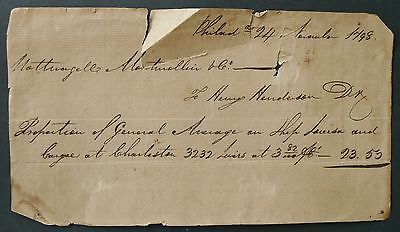 Philad^a 24 Novembr 1798
Nottnagell Montmollin & Co.
To Henry Henderson Dr
Proportion of General Average on Ship Louisa and
Cargoe at Charleston 3232 Livrs at 3 82/100 pCt 23.53